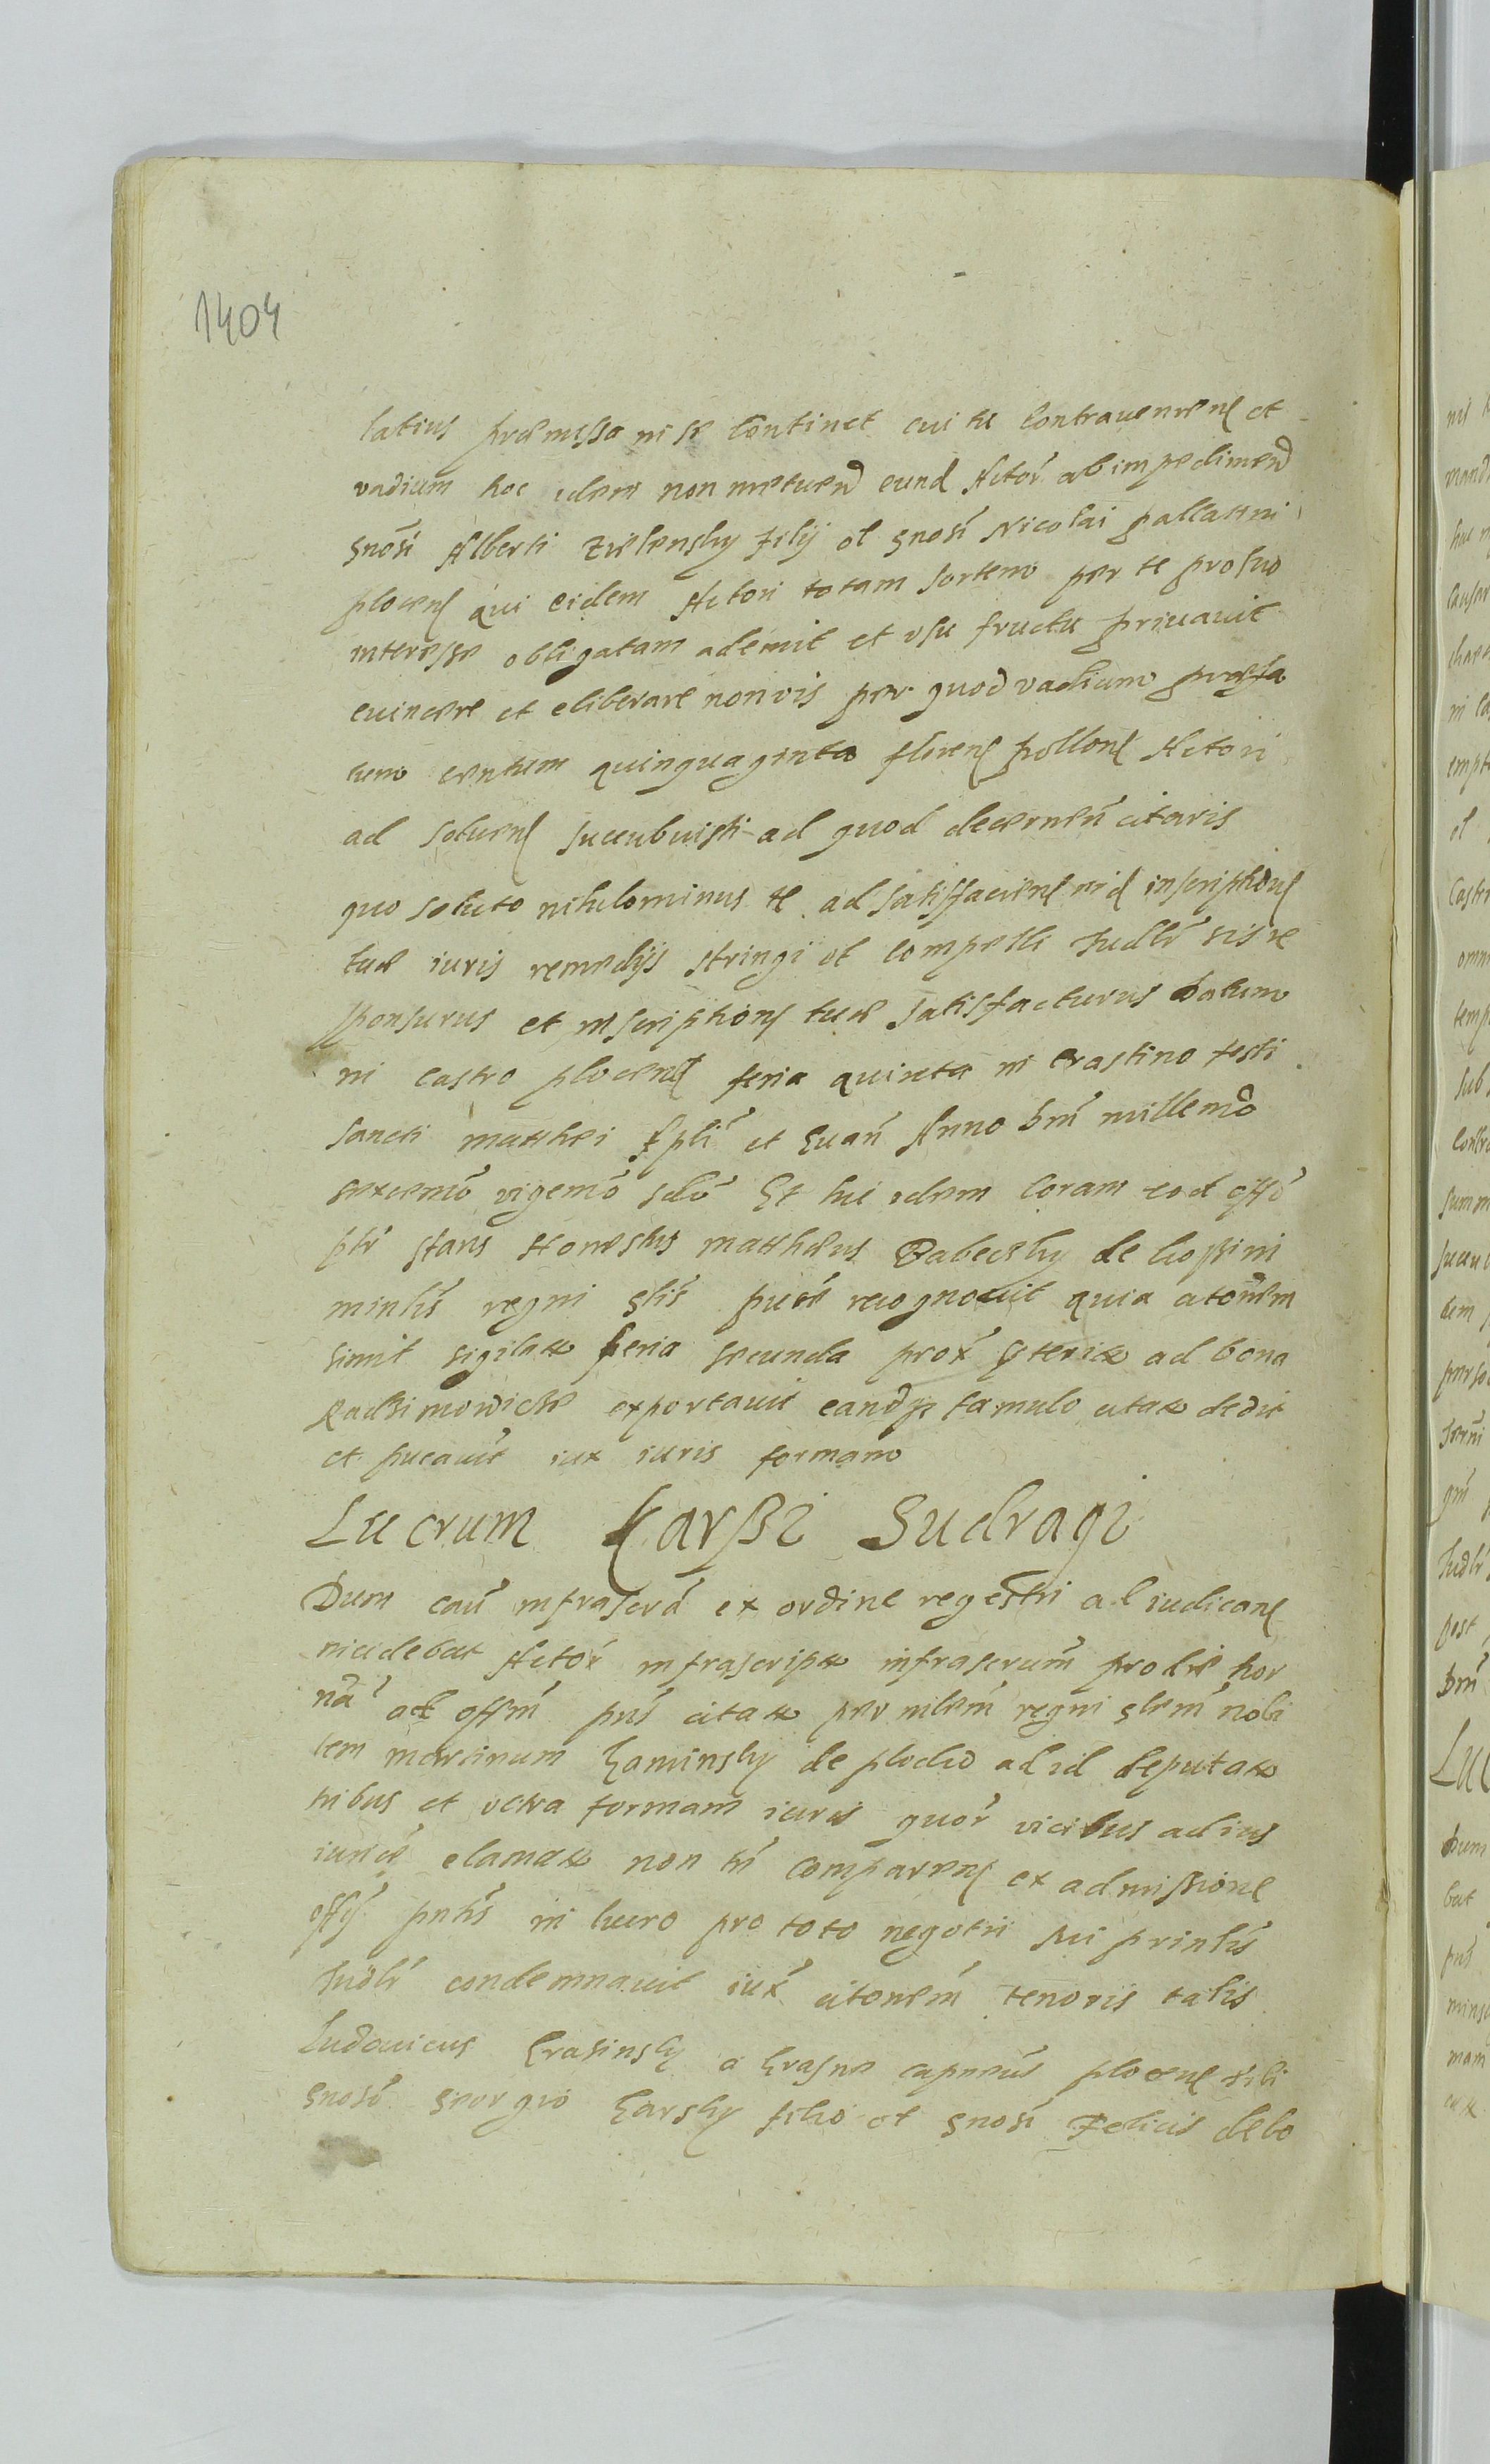 1404
latius præmissa in se continet cui tu contraueniens et
vadium hoc idem non metuend eund Actor ab impedimend
gnosi Alberti Zielensky filij ol gnosi Nicolai pallatini
plocens qui eidem Actori totam sortem per te pro suo
interesse obligatam ademit et vsu fructu priuauit
euincere et eliberare non vis per quod vadium præfa
tum centum quinquaginta florens pollons Actori
ad soluens succubuisti ad quod decernen citaris
quo soluto nihilominus te ad satisfaciens inscriptions
tuæ iuris remedijs stringi et compelli Iudlr sis re
sponsurus et inscriptions tuæ satisfacturus Datum
in castro plocens feria quinta in crastino festi
sancti matthei Apli et Euan Anno Dni millemo
sexcemo vigemo sdo Et hic idem coram eod offo
ptr stans Honestus matthæus Babecky de
minlis regni glis pure recognouit quia citonem
simil sigilat feria secunda prox pterita ad bona
Radzimowicze exportauit eandq famulo citat dedit
et pucauit iux iuris formam
Lucrum Karszi Sudragi
Dum cau infrascra ex ordine regestri ad iudicans
incidebat Actor infrascript infrascrum pro die hor
na ad offm pns citat per mlem regni glem nobi
lem marcinum Kaminsky de plocko ad id deputat
tribus et vltra formam iuris quor vicibus ad ius
iurice clamat non tn comparens ex admissione
offij pntis in lucro pro toto negotii sui prinlis
Iudlr condemnauit iux citonem tenoris talis
Ludouicus Krasinsky a Krasne capneus plocens tibi
gnoso georgio Karsky filio ol gnosi Felicis debo